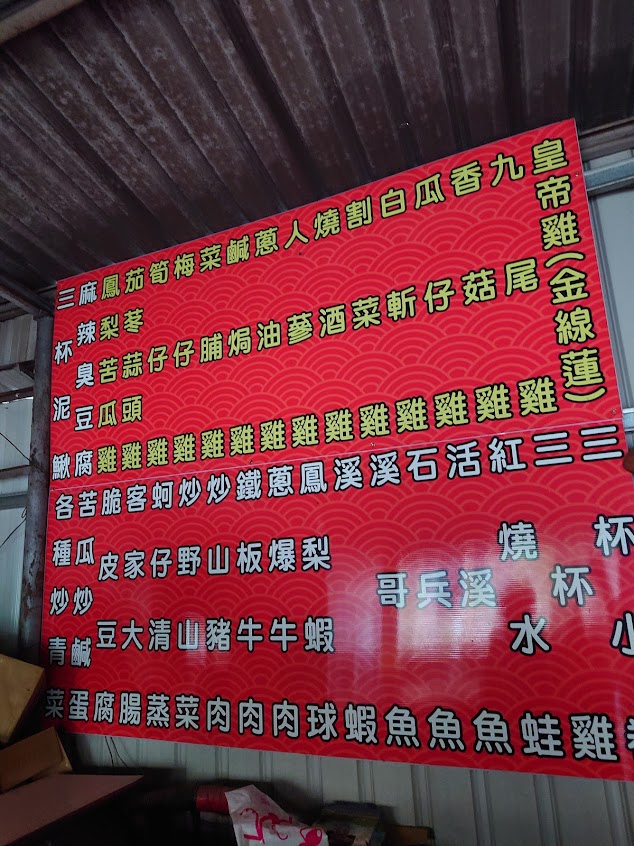 皇帝雞(金線蓮)
九尾雞
香菇雞
瓜仔雞
白斬雞
割菜雞
燒酒雞
人蔘雞
蔥油雞
鹹焗雞
菜脯雞
梅仔雞
筍仔雞
茄苳蒜頭雞
鳳梨苦瓜雞
麻辣臭豆腐
三杯泥鰍
三杯小
三杯雞
紅燒水蛙
活溪魚
石兵魚
溪哥魚
溪蝦
鳳梨蝦球
蔥爆牛肉
鐵板牛肉
炒山豬肉
炒野山菜
蚵仔清蒸
客家大腸
脆皮豆腐
苦瓜炒鹹蛋
各種炒青菜